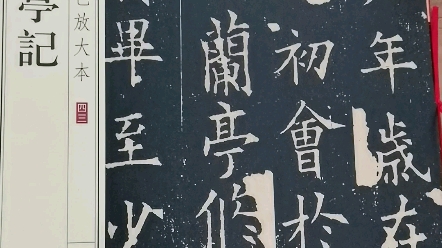 年歲在
初會於
蘭亭脩
畢至少
放大本
四三
亭記